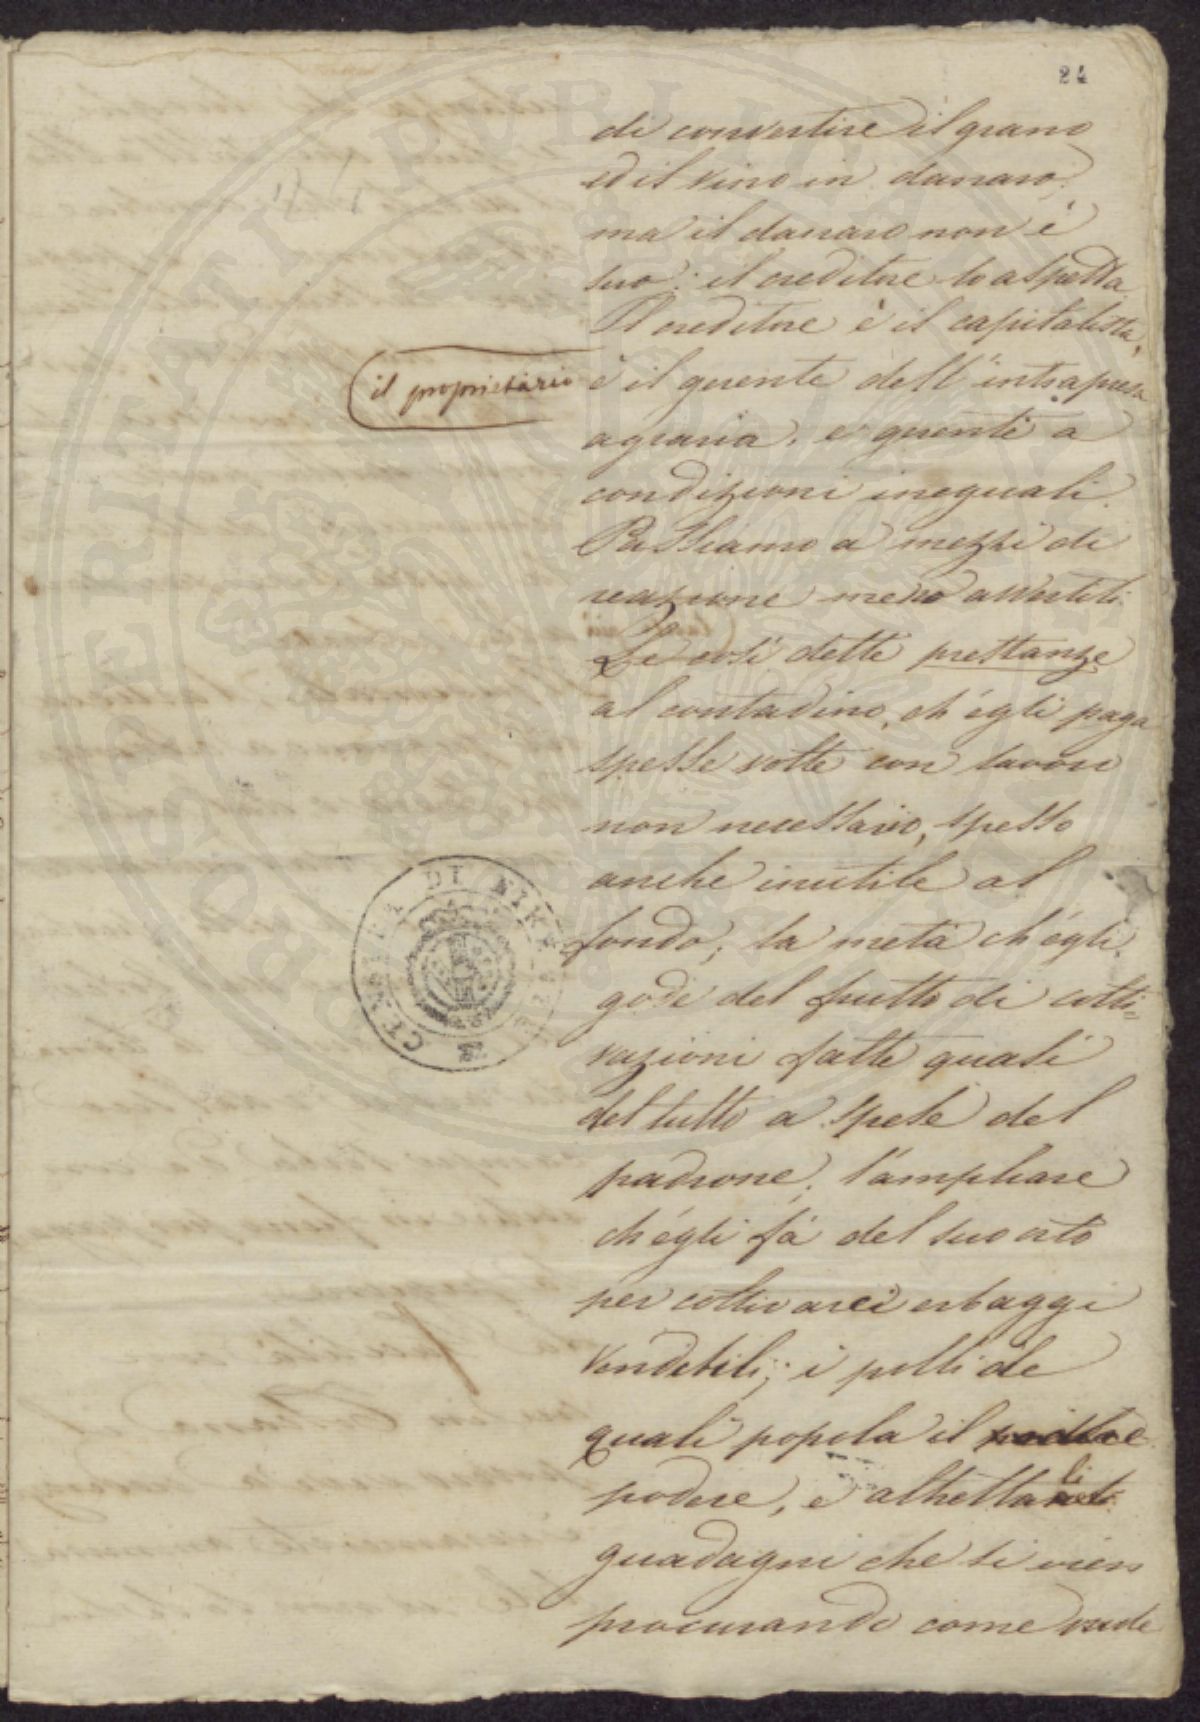 24
di convertire il grano
ed il vino in danaro,
ma il danaro non è
suo: il creditore lo aspetta.
Il creditore è il capitalista,
il proprietario
è il gerente dell'intrapresa
agraria, e gerente a
condizioni ineguali.
Passiamo a mezzi di
reazione meno avvertiti.
Le così dette prestanze
al contadino, ch'egli paga
spesse volte con lavoro
non necessario, spesso
anche inutile al
fondo; la metà ch'egli
gode del frutto di colti=
vazioni fatte quasi
del tutto a spese del
padrone; l'ampliare
ch'egli fa del suo orto
per coltivarci erbaggi
vendibili; i polli de
quali popola il
podere, e altrettali
guadagni che si vien
procurando come vende
CENSURA DI
PROSPERITATI PVBLICAE